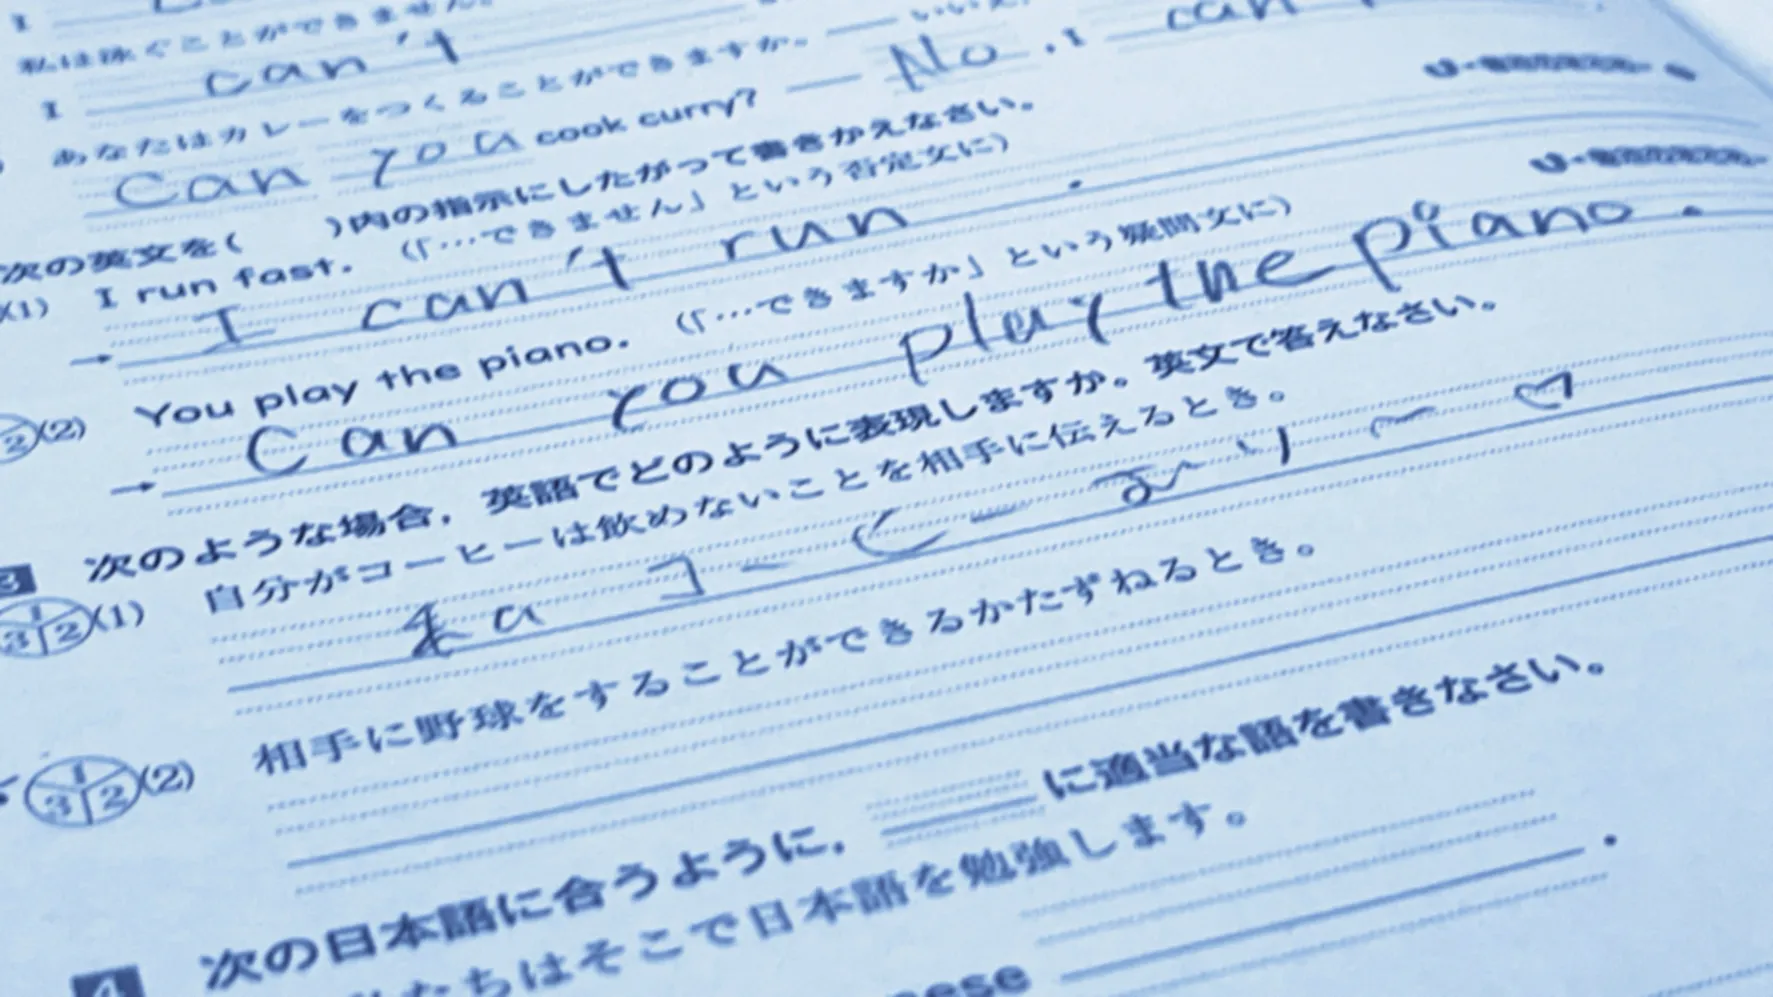 I
私は泳ぐことができません。
I can't
あなたはカレーをつくることができますか。 ― いいえ,
Can you cook curry? ― No, I can
次の英文を( )内の指示にしたがって書きかえなさい。
(1) I run fast. (「…できません」という否定文に)
→ I can't run .
(2) You play the piano. (「…できますか」という疑問文に)
→ Can you play the piano.
3 次のような場合，英語でどのように表現しますか。英文で答えなさい。
(1) 自分がコーヒーは飲めないことを相手に伝えるとき。
(2) 相手に野球をすることができるかたずねるとき。
4 次の日本語に合うように， に適当な語を書きなさい。
たちはそこで日本語を勉強します。
nese .